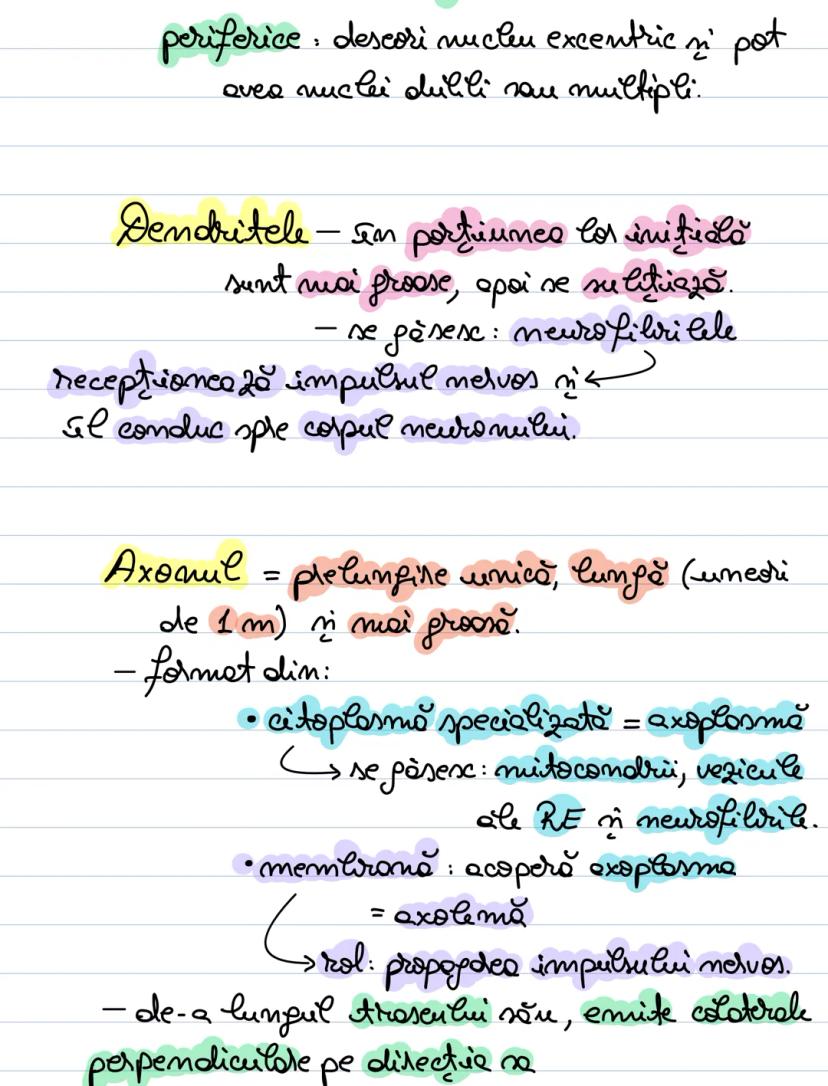 periferice : deseori nucleu excentric și pot
avea nuclei dubli sau multipli.
Dendritele – în porțiunea lor inițială
sunt mai groase, apoi se subțiază.
– se găsesc: neurofibrilele
recepționează impulsul nervos și
îl conduc spre corpul neuronului.
Axonul = prelungire unică, lungă (uneori
de 1 m) și mai groasă.
– format din:
• citoplasmă specializată = axoplasmă
↳ se găsesc: mitocondrii, vezicule
ale RE și neurofibrile.
• membrană : acoperă axoplasma
= axolemă
↳ rol: propagarea impulsului nervos.
– de-a lungul traseului său, emite colaterale
perpendiculare pe direcția sa